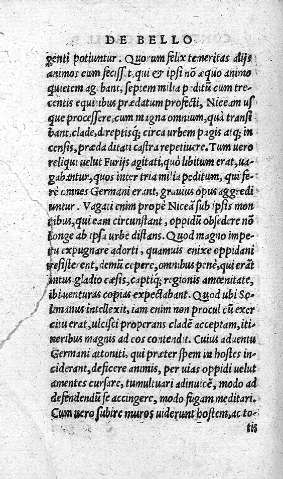 DE BELLO
genti potiuntur. Quorum felix temeritas alijs
animos cum fecisset, qui & ipsi nõ aquo animo
quietem agebant, septem milia peditũ cum tre-
centis equitibus prædatum profecti, Niceam us
que processere, cum magna omnium, quà transi
bant, clade, direptisq; circa urbem pagis atq; in
censis, præda ditati castra repetiuere. Tum uero
reliqui uelut Furijs agitati, quò libitum erat, ua-
gabantur, quos inter tria milia peditum, qui fe-
rè omnes Germani erant, grauius opus aggredi
untur. Vagati enim propè Niceã sub ipsis mon
tibus, qui eam circunstant, oppidũ obsedere nõ
longe ab ipsa urbe distans. Quod magno impe-
tu expugnare adorti, quamuis enixe oppidani
resisterent, demũ cepere, omnibus penè, qui erãt
intus gladio cæsis, captiq; regionis amœnitate,
ibi uenturas copias expectabant. Quod ubi So-
limanus intellexit, iam enim non procul cũ exer
citu erat, ulcisci properans cladẽ acceptam, iti-
neribus magis ad eos contendit. Cuius aduentu
Germani attoniti, qui præter spem in hostes in
ciderant, deficere animis, per uias oppidi uelut
amentes cursare, tumultuari adinuicẽ, modo ad
defendendũ se accingere, modo fugam meditari.
Cum uero subire muros uiderunt hostem, ac to-
tis